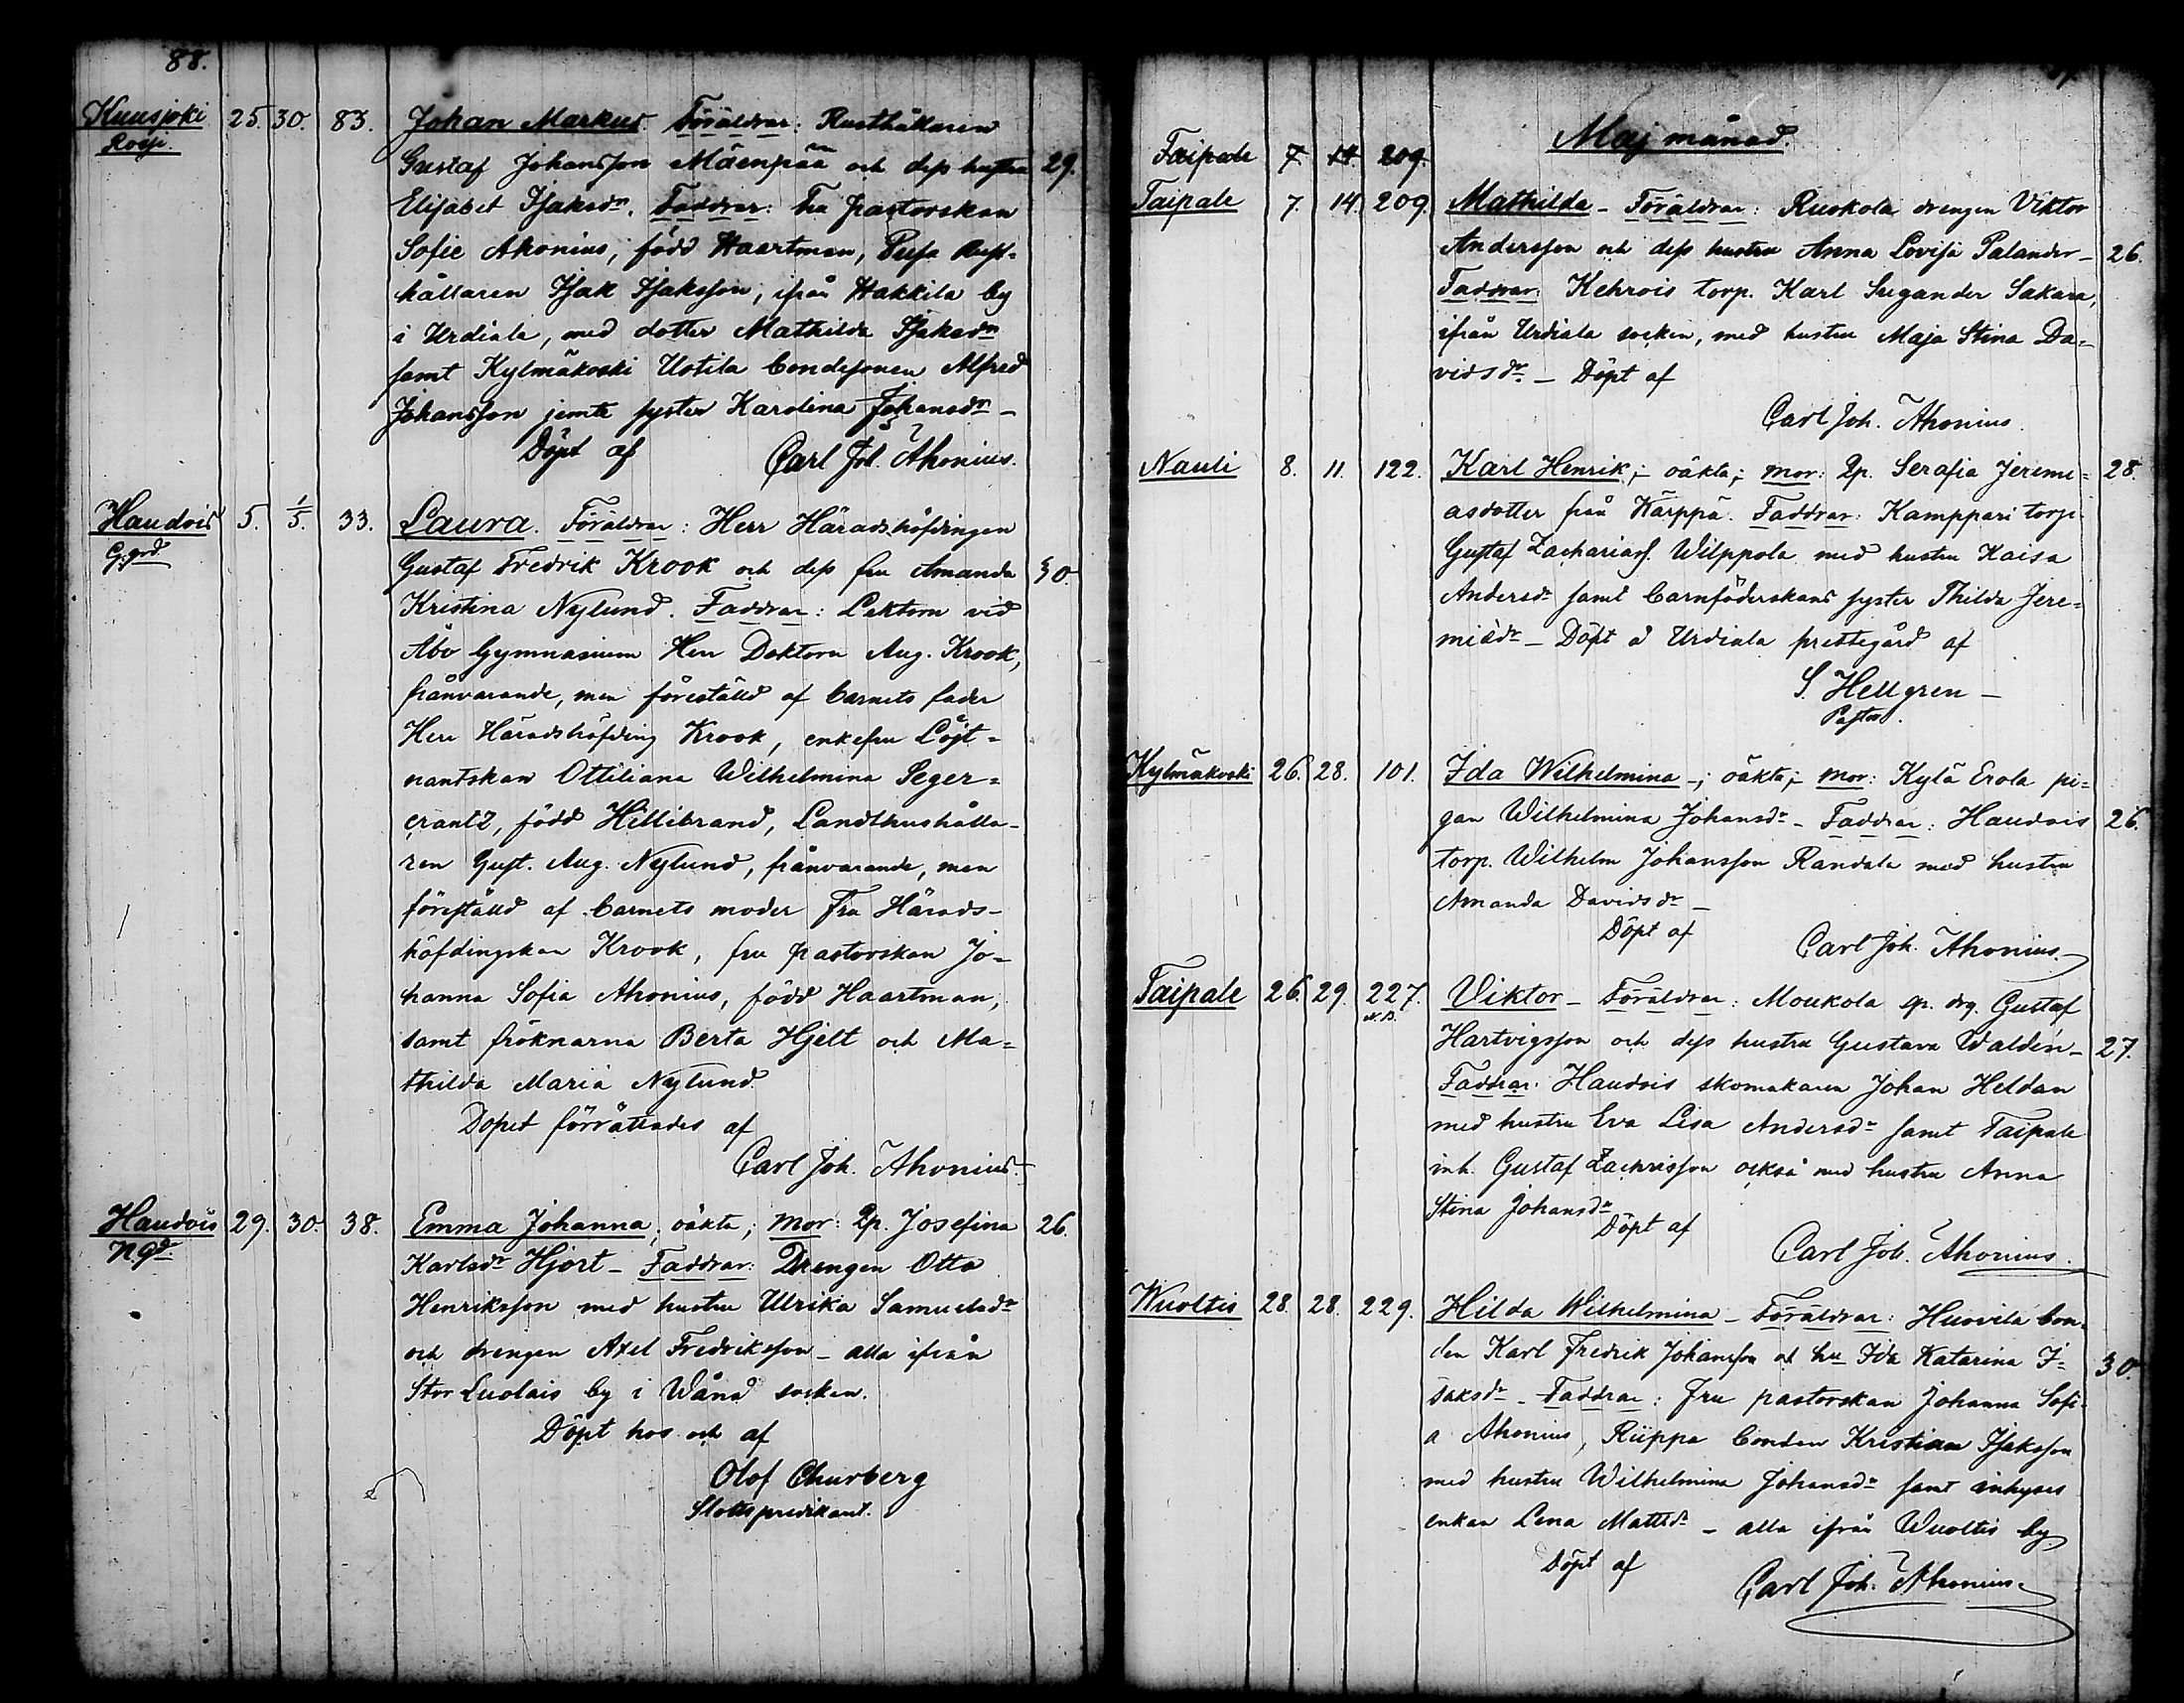 88.
Kuusjoki 25. 30. 83. Johan Markus. Föräldrar: Rusthållaren
Gustaf Johansson Mäenpää och dess hustru 29.
Elisabet Isaksdr. Faddrar: Fru pastorskan
Sofie Ahonius, född Haartman, Rust-
hållaren Isak Isaksson, ifrån Hakkila by
i Urdiala, med dotter Mathilda Isaksdr
samt Kylmäkoski Uotila bondesonen Alfred
Johansson jemte syster Karolina Johansdr –
Döpt af Carl Joh. Ahonius.
Haudois 5. 1/5. 33. Laura. Föräldrar: Herr Häradshöfdingen
G.grd. Gustaf Fredrik Krook och dess fru Amanda 30.
Kristina Nylund. Faddrar: Lektorn vid
Åbo Gymnasium Herr Doktorn Aug. Krook,
frånvarande, men föreställd af barnets fader
Herr Häradshöfding Krook, enkefru Löjt=
nantskan Ottiliana Wilhelmina Seger=
crantz, född Hillibrand, Landthushålla-
ren Gust. Aug. Nylund, frånvarande, men
föreställd af barnets moder Fru Härads-
höfdingskan Krook, fru pastorskan Jo-
hanna Sofia Ahonius, född Haartman,
samt fröknarna Berta Hjelt och Ma=
thilda Maria Nylund
Dopet förrättades af
Carl Joh. Ahonius.
Haudois 29. 30. 38. Emma Johanna, oäkta; mor: Qp. Josefina 26.
N.gd. Karlsdr Hjort – Faddrar: Drengen Otto
Henriksson med hustru Ulrika Samuelsdr
och drengen Axel Fredriksson – alla ifrån
Stor Luolais by i Wånå socken.
Döpt hos och af
Olof Churberg
Slottspredikant.
Maj månad.
Taipale 7. 14. 209.
Taipale 7. 14. 209. Mathilda – Föräldrar: Ruokola drengen Viktor
Andersson och dess hustru Anna Lovisa Palander – 26.
Faddrar: Kehrois torp. Karl Sakara,
ifrån Urdiala socken, med hustru Maja Stina Da-
vidsdr. – Döpt af
Carl Joh. Ahonius.
Nauli 8. 11. 122. Karl Henrik; – oäkta; – mor: Qp. Serafia Jeremi= 28.
asdotter från Kärppä. Faddrar: Kamppari torp.
Gustaf Zachariass. Wilppola med hustru Kaisa
Andersdr samt barnföderskans syster Thilda Jere=
miædr – Döpt å Urdiala prestegård af
S. Hellgren –
Pastor.
Kylmäkoski 26. 28. 101. Ida Wilhelmina –; oäkta; – mor: Kylä Erola pi=
gan Wilhelmina Johansdr – Faddrar: Haudois 26.
torp. Wilhelm Johansson Randala med hustru
Amanda Davidsdr –
Döpt af
Carl Joh. Ahonius.
Taipale 26. 29. 227. Viktor – Föräldrar: Moukola drg. Gustaf
N.B.
Hartvigsson och dess hustru Gustava Waldén – 27.
Faddrar: Haudois skomakaren Johan Heldan
med hustru Eva Lisa Andersdr samt Taipale
inh. Gustaf Zachrisson också med hustru Anna
Stina Johansdr
Döpt af
Carl Joh. Ahonius.
Wuoltis 28. 28. 229. Hilda Wilhelmina – Föräldrar: Huovila bon-
den Karl Fredrik Johansson och hu Ida Katarina I= 30.
saksdr – Faddrar: Fru pastorskan Johanna Sofi-
a Ahonius, Riippa bonden Kristian Isaksson
med hustru Wilhelmina Johansdr samt inhyses
enkan Lena Mattsdr – alla ifrån Wuoltis by
Döpt af
Carl Joh. Ahonius.